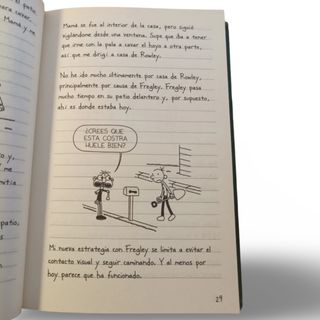 el patio
para cavar.
Mamá y me
Mamá se fue al interior de la casa, pero siguió
vigilándome desde una ventana. Supe que iba a tener
que irme con la pala a cavar el hoyo a otra parte,
así que me dirigí a casa de Rowley.
No he ido mucho últimamente por casa de Rowley,
principalmente por causa de Fregley. Fregley pasa
mucho tiempo en su patio delantero y, por supuesto,
ahí es donde estaba hoy.
¿CREES QUE
ESTA COSTRA
HUELE BIEN?
Mi nueva estrategia con Fregley se limita a evitar el
contacto visual y seguir caminando. Y al menos por
hoy parece que ha funcionado.
29